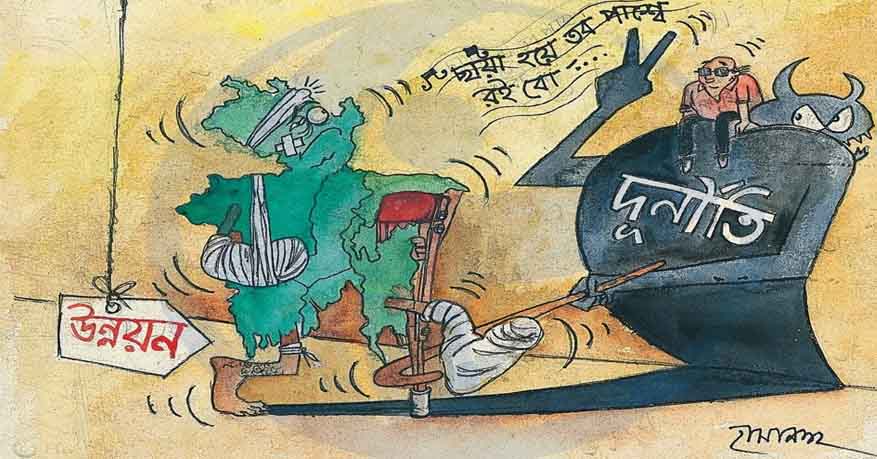 ছায়া হয়ে তব পার্শ্বে
রইবো ....
দুর্নীতি
উন্নয়ন